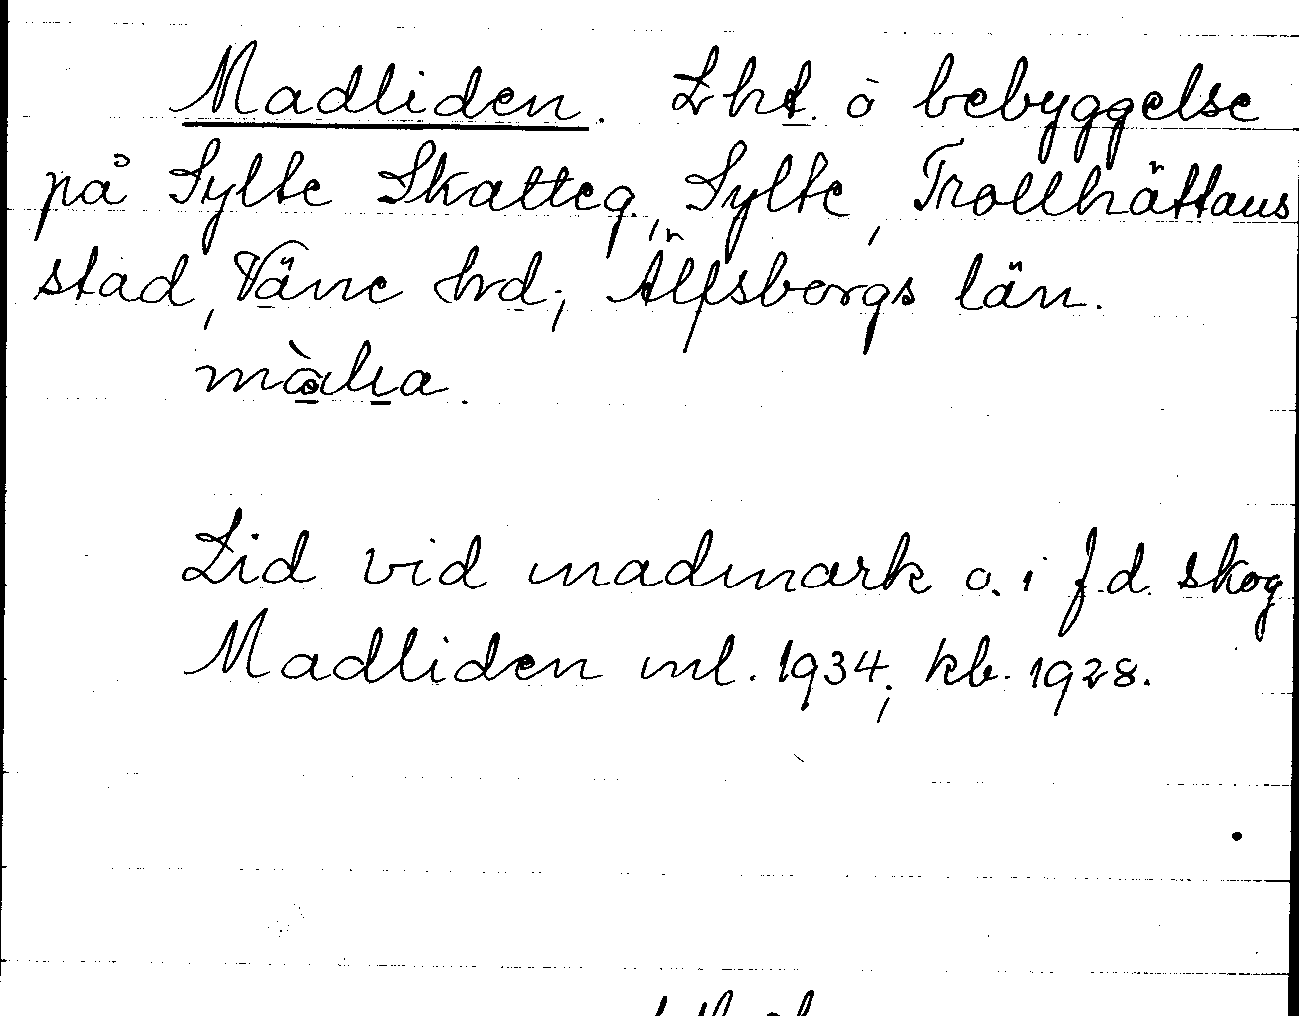 Madliden. Lht. o bebyggelse
på Sylte Skatteg., Sylte, Trollhättans
stad, Väne hrd, Älfsborgs län.
Lid vid madmark o. i f.d. skog
Madliden ml. 1934; kb. 1928.